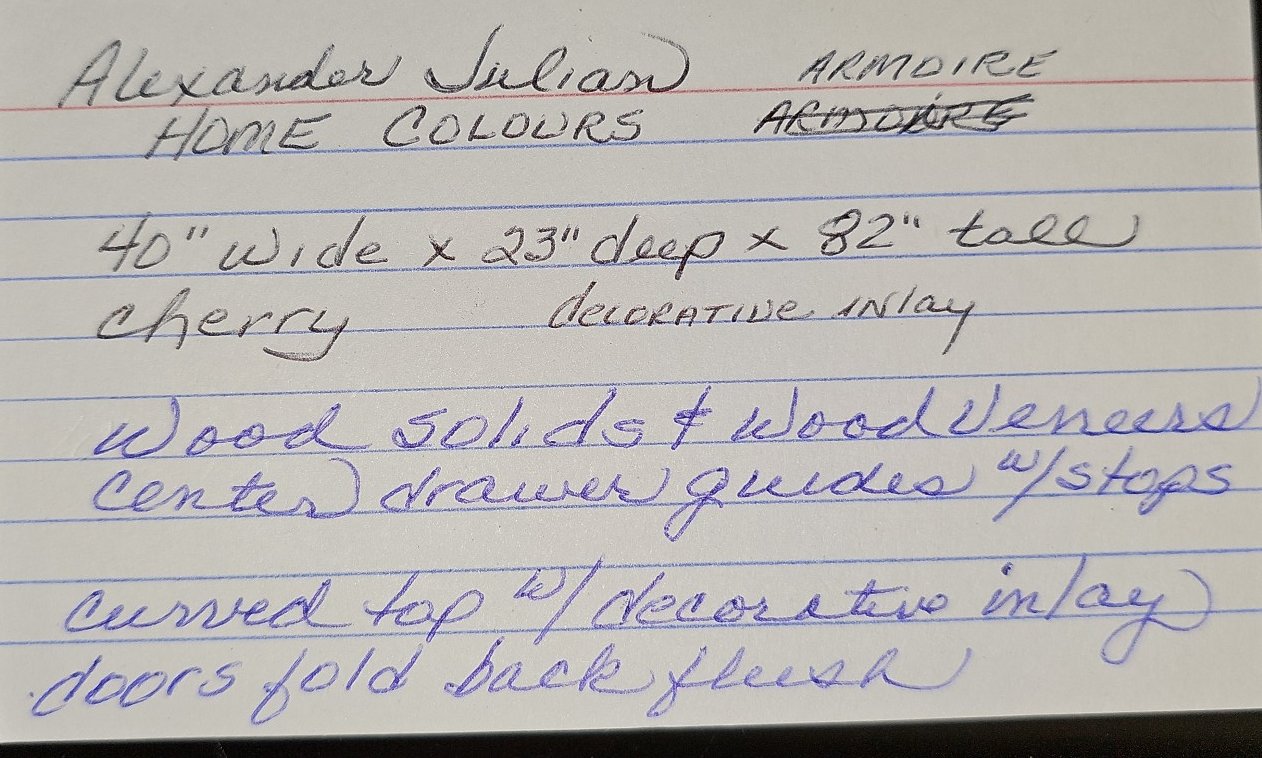 Alexander Julian ARMOIRE
HOME COLOURS ARMOIRE
40" wide x 23" deep x 82" tall
cherry decorative inlay
wood solids & wood veneers
center drawer guides w/stops
curved top w/decorative inlay
doors fold back flush